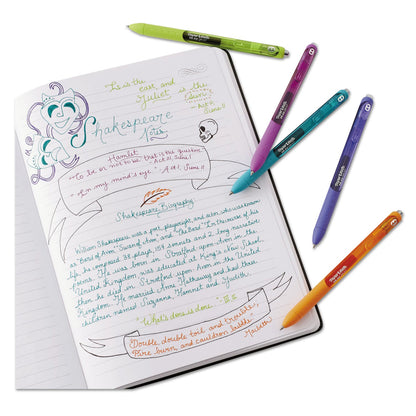 'Tis is the
east and
Juliet is the
sun
-Act II,
Scene II
Shakespeare
Notes
Hamlet
"To be or not to be that is the question"
-Act III, Scene I
"In my mind's eye" Act I Scene II
Shakespeare Biography
William Shakespeare was a poet, playwright, and actor who was known
as "Bard of Avon," "Swan of Avon," and "The Bard." In the course of his
life, he composed 38 plays, 154 sonnets and 2 long narrative
poems. He was born in Stratford upon Avon in the
United Kingdom, was educated at King's New School,
then he died in Stratford upon Avon in the United
Kingdom. He married Anne Hathaway and had three
children named Suzanna, Hamnet and Judith.
"What's done is done" III.II
"Double, double toil and trouble,
Fire burn, and cauldron bubble"
Macbeth